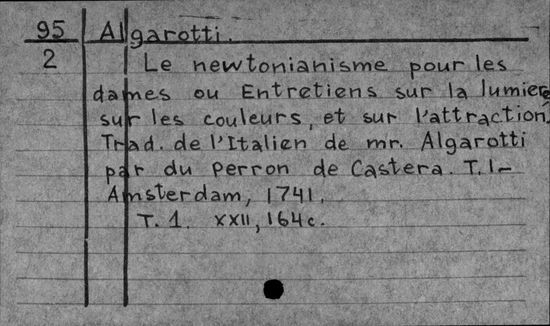 95 Algarotti.
2 Le newtonianisme pour les
dames ou Entretiens sur la lumiere
sur les couleurs, et sur l'attraction.
Trad. de l'Italien de mr. Algarotti
par du Perron de Castera. T. 1-
Amsterdam, 1741.
T. 1. XXII, 164c.